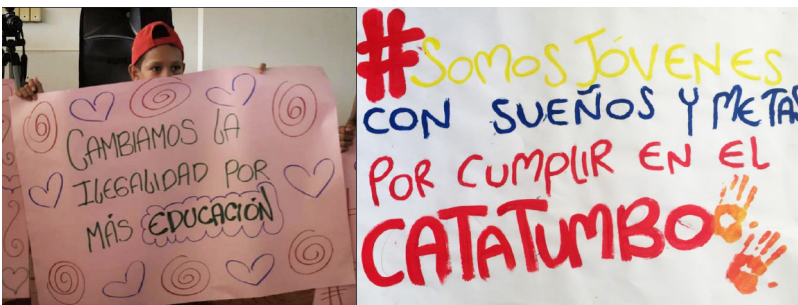 CAMBIAMOS LA
ILEGALIDAD POR
MÁS EDUCACIÓN
#SOMOS JÓVENES
CON SUEÑOS Y METAS
POR CUMPLIR EN EL
CATATUMBO